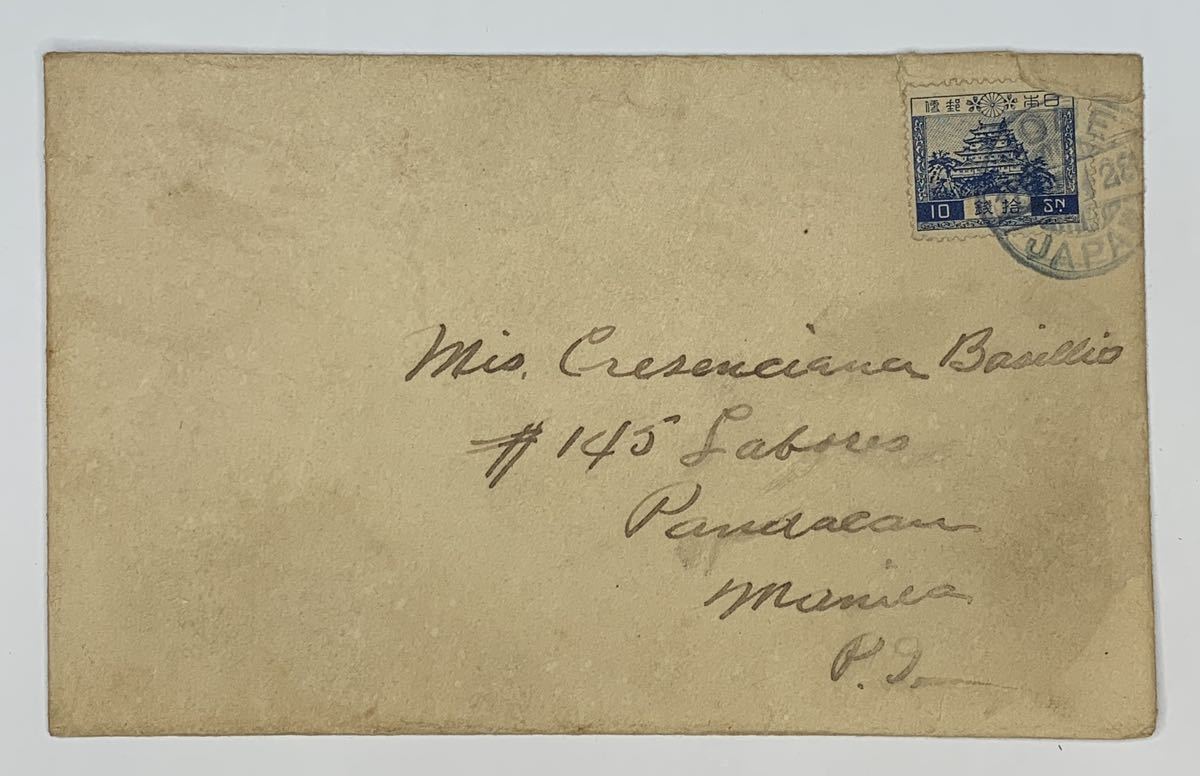 日本 郵便
10 拾銭 SN
28
JAPA
Mis. Cresenciana Basillio
# 145 Labores
Pandacan
Manila
P. I.